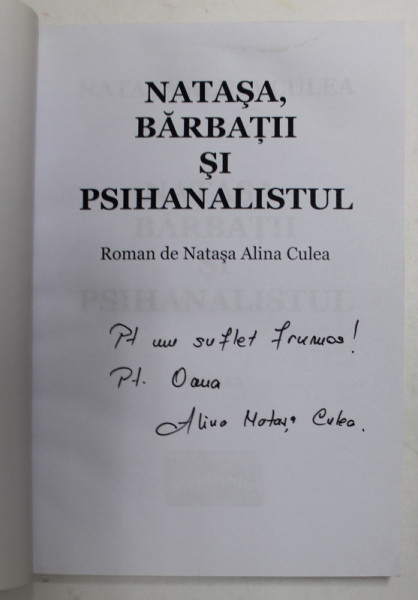 NATAŞA,
BĂRBAŢII
ŞI
PSIHANALISTUL
Roman de Nataşa Alina Culea
Pt un suflet frumos!
Pt. Oana
Alina Nataşa Culea.